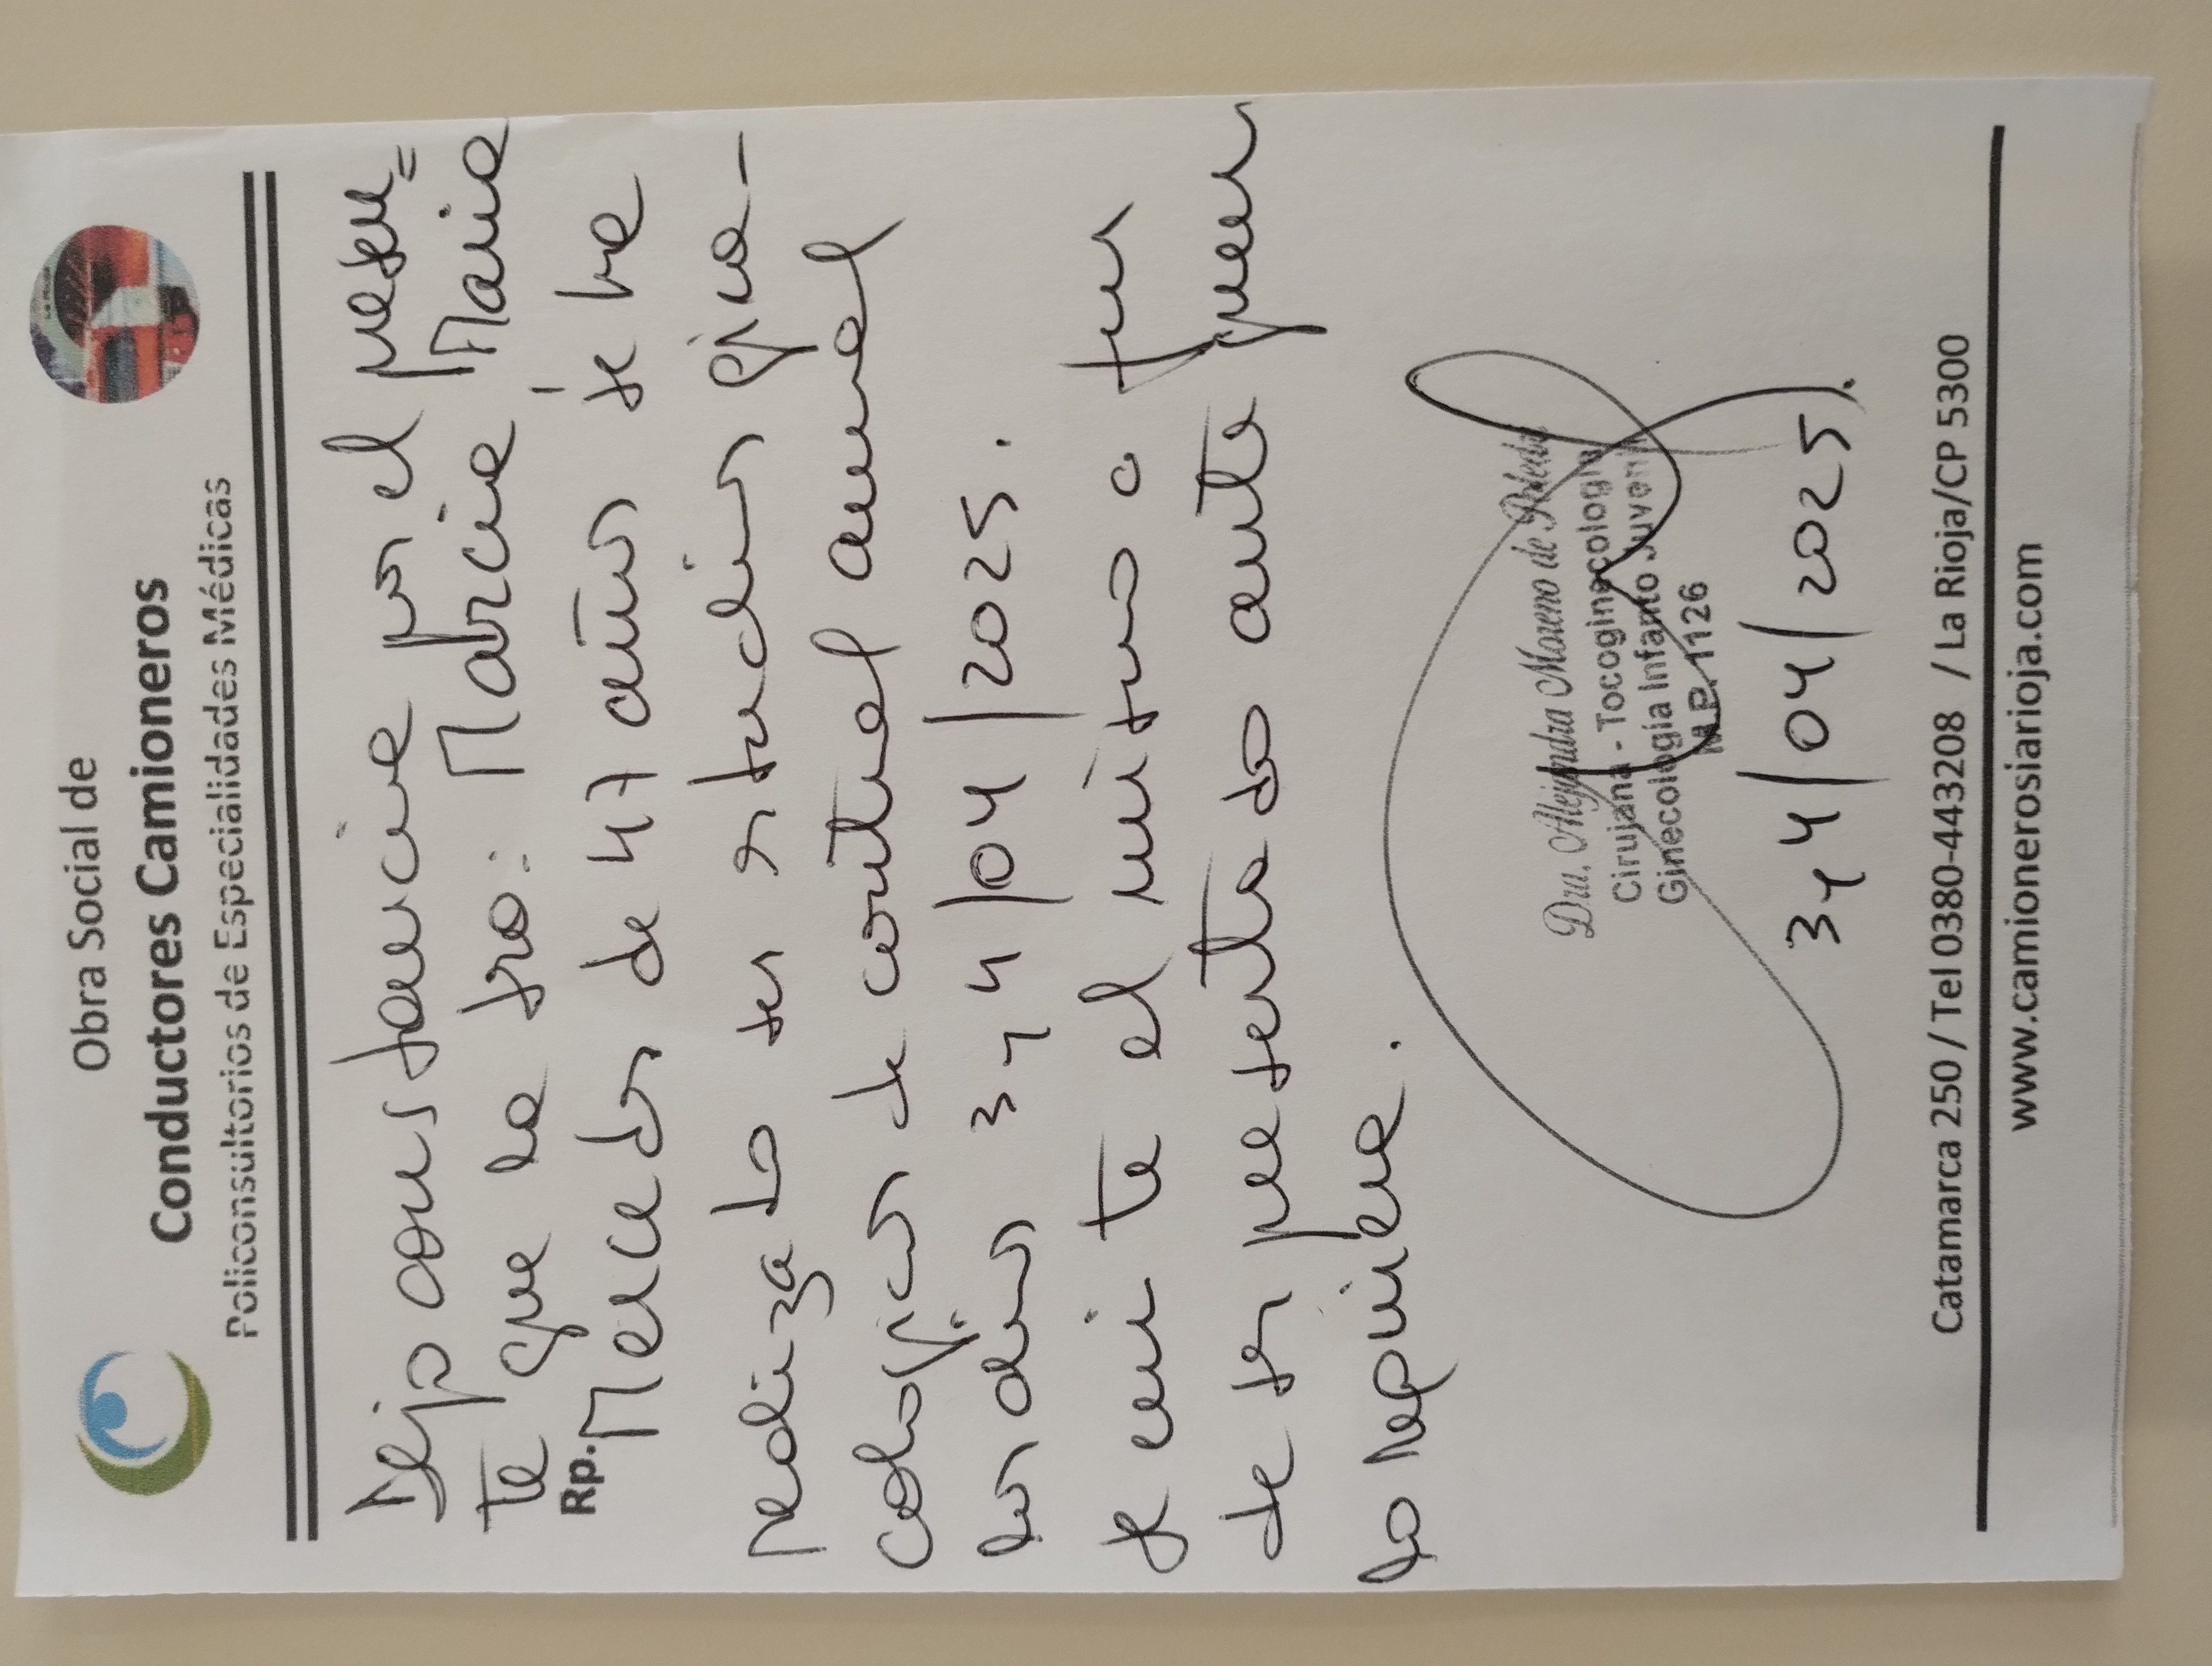 Obra Social de
Conductores Camioneros
Policonsultorios de Especialidades Médicas
Dejo constancia por el presen=
te que la sra: Marcia María
Rp.
Mercedes de 47 años se ha
realizado sus estudios gine-
cológicos de control anual
los días 3 y 4/04/2025.
Se emite el mismo a fin
de ser presentado ante quien
lo requiera.
Dra. Alejandra Moreno de Poledo
Cirujana - Tocoginecología
Ginecología Infanto Juvenil
M.P. 1126
3 y 4/04/2025.
Catamarca 250 / Tel 0380-443208 / La Rioja/CP 5300
www.camionerosiarioja.com